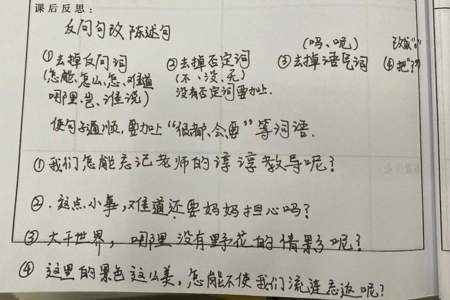 课后反思：
反问句改陈述句
(吗、呢) 改成"。"
①去掉反问词 ②去掉否定词 ③去掉语气词 ④把"？"
(怎能、怎么、怎、难道 (不、没、无)
哪里、岂、谁说) 没有否定词要加上.
使句子通顺,要加上"很都、会要"等词语.
①我们怎能忘记老师的谆谆教导呢？
②.这点小事,难道还要妈妈担心吗？
③大千世界，哪里没有野花的倩影呢？
④这里的景色这么美，怎能不使我们流连忘返呢？